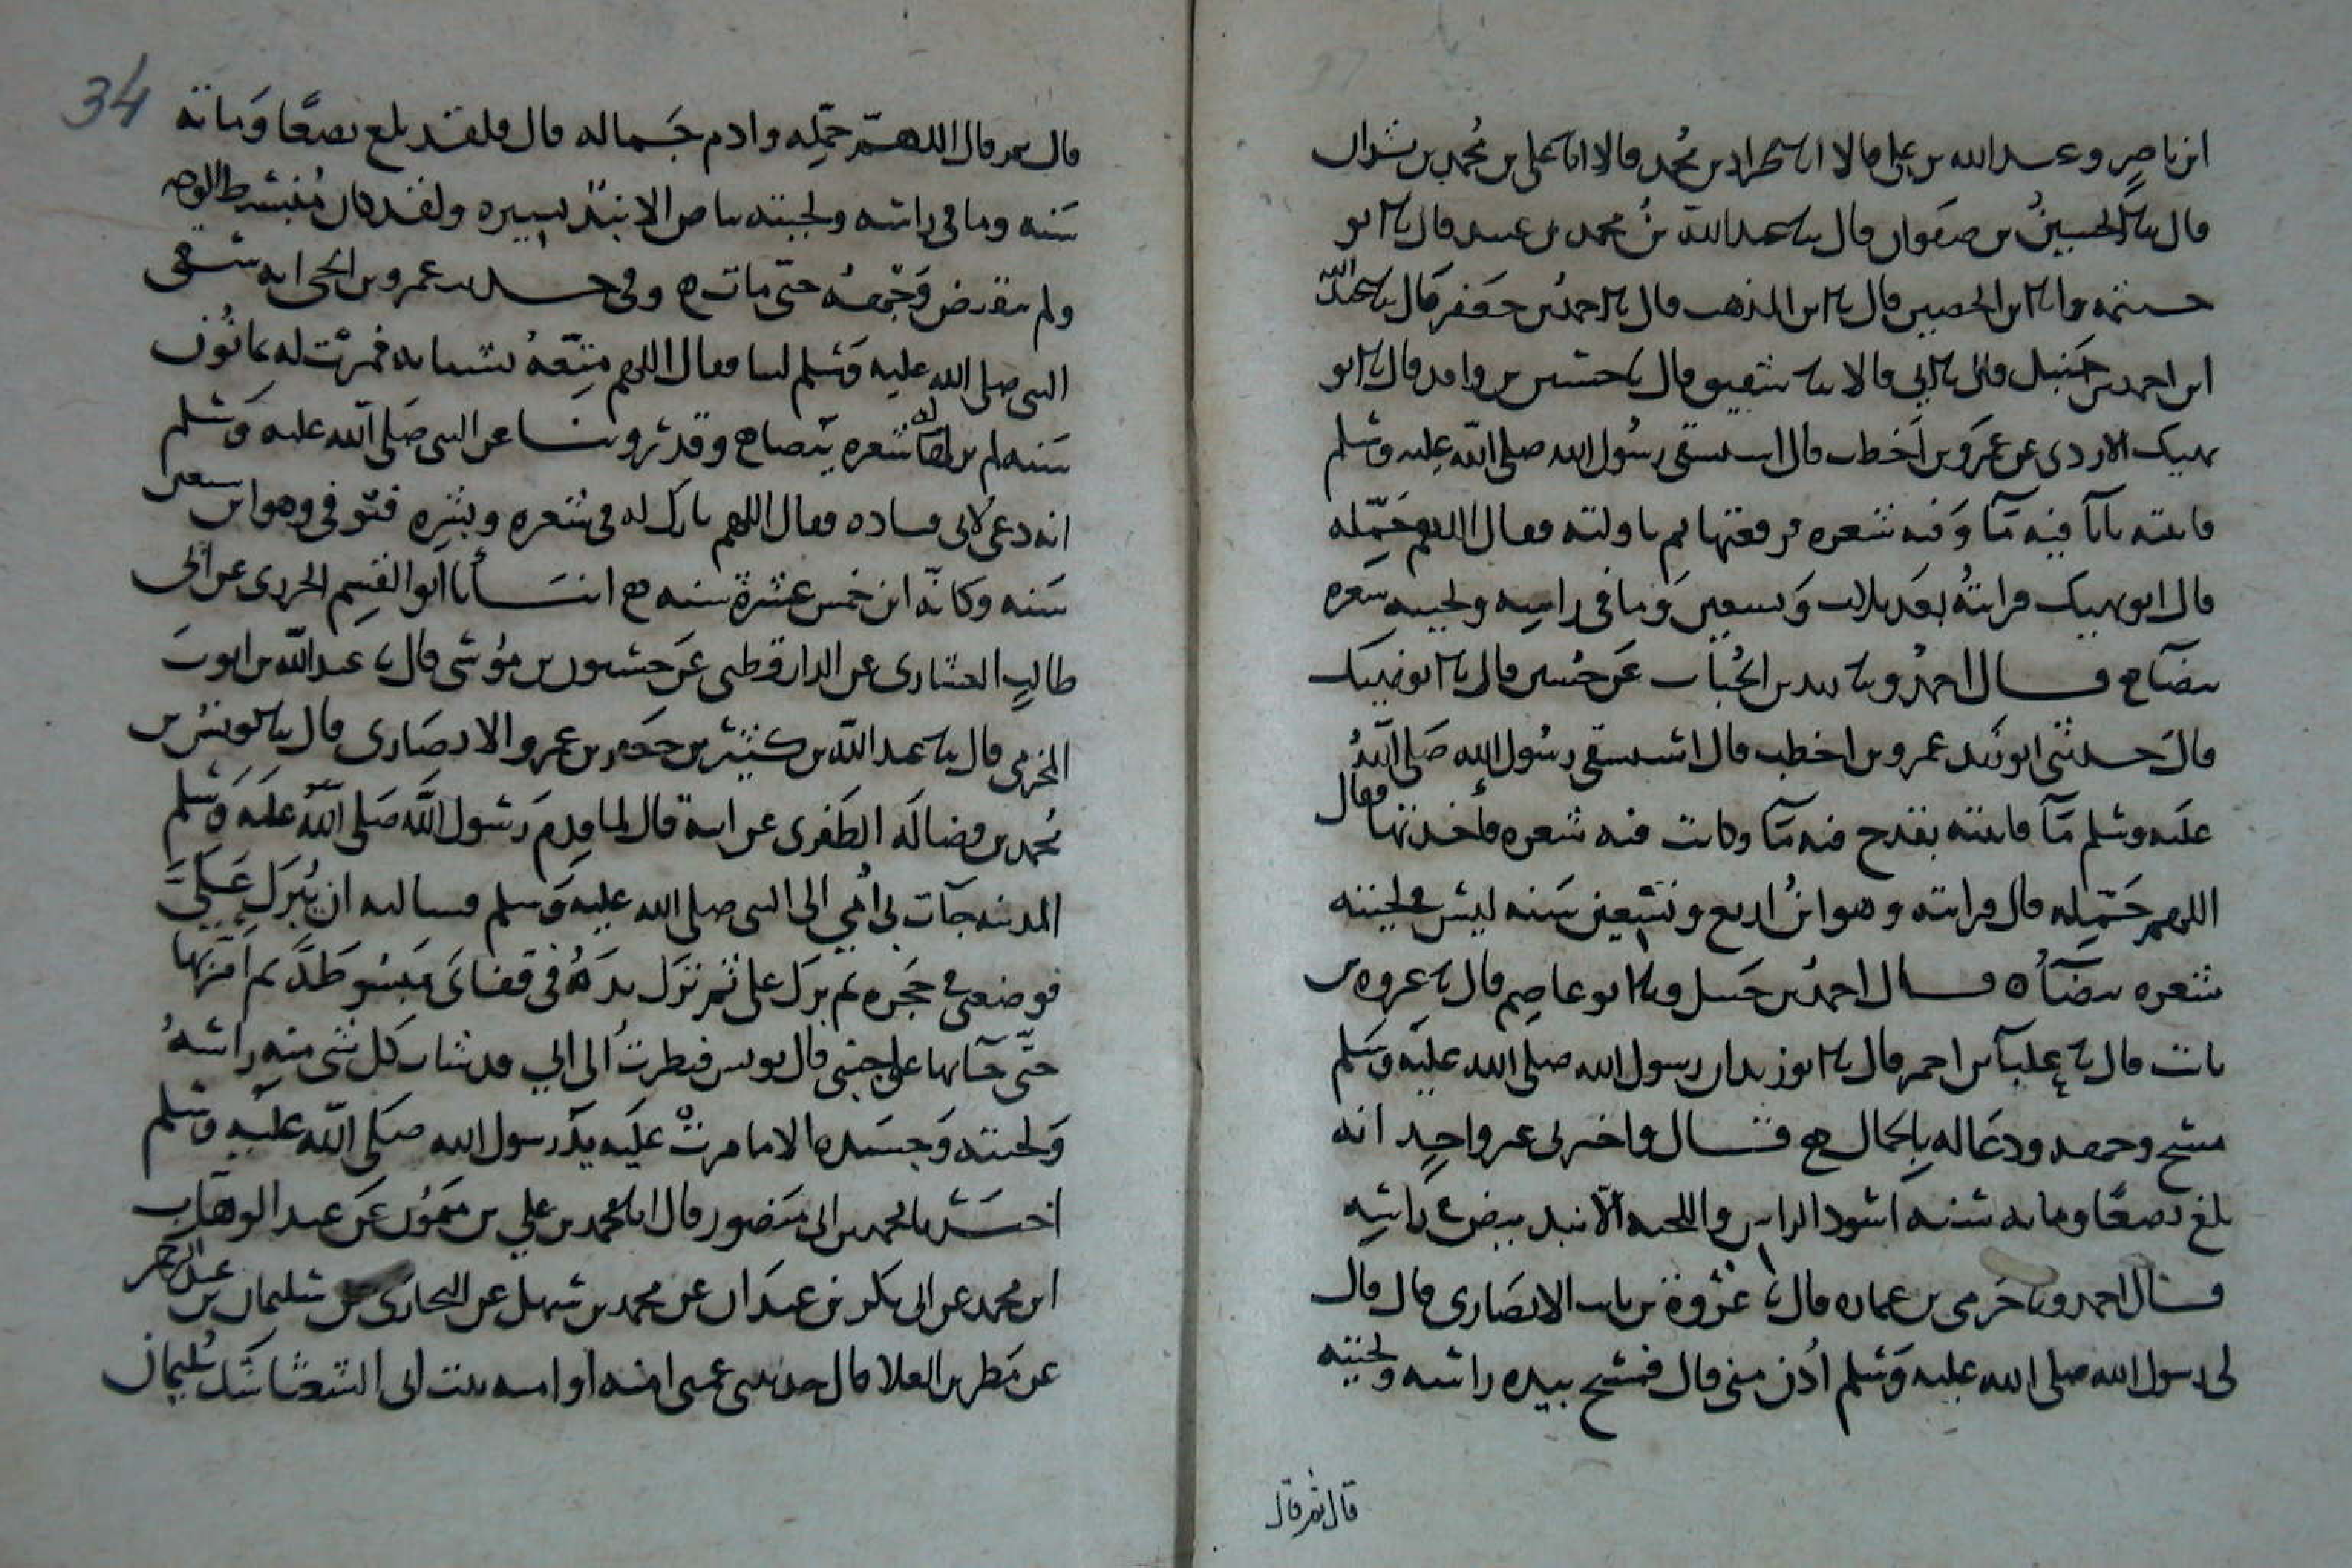 ابن ناصر وعبد الله بن علي قالا انا طراد بن محمد قالا انا علي بن محمد بن بشران
قال ثنا الحسين بن صفوان قال ثنا عبد الله بن محمد بن عبيد قال ثنا ابو
خيثمة وانا ابن الحصين قال انا ابن المذهب قال انا احمد بن جعفر قال ثنا عبد الله
ابن احمد بن حنبل قال ثنا ابي قالا ثنا شقيق قال ثنا حسين بن واقد قال ثنا ابو
نهيك الازدى عن عمرو بن اخطب قال استسقى رسول الله صلى الله عليه وسلم
فاتيته باناً فيه مآ وفيه شعره فرفعتها ثم ناولته فقال اللهم جمّله
قال ابو نهيك فرايته بعد ثلاث وتسعين وما في راسه ولحيته شعره
بيضآ قال احمد وثنا زيد بن الحباب عن حسين قال ثنا ابو نهيك
قال حدثني ابو زيد عمرو بن اخطب قال استسقى رسول الله صلى الله
عليه وسلم مآ فاتيته بقدح فيه مآ وكانت فيه شعره فأخذتها فقال
اللهم جمّله قال فرايته وهو ابن اربع وتسعين سنه ليس في لحيته
شعره بيضآ قال احمد بن حنبل وثنا ابو عاصم قال ثنا عروه بن
ثابت قال ثنا علبآ بن احمر قال ثنا ابو زيد ان رسول الله صلى الله عليه وسلم
مسح وجهه ودعا له بالجمال قال واخبرني غير واحد انه
بلغ بضعا ومايه سنه اسود الراس واللحيه الّا نبذ بيض في راسه
قال احمد وثنا حرمي بن عماره قال ثنا عزرة بن ثابت الانصارى قال قال
لي رسول الله صلى الله عليه وسلم أدن مني قال فمسح بيده راسه ولحيته
قال ثم قال
34
قال ثم قال اللهمّ جمّله وادم جماله قال فلقد بلغ بضعًا ومائه
سنه وما في راسه ولحيته بياض الا نبذ يسيره ولقد كان منبسط الوجه
ولم ينقبض وجهه حتّى مات وفي حديث عمرو بن الحمق انه سقى
النبي صلى الله عليه وسلم لبنا فقال اللهم متّعه بشبابه فمرّت له ثمانون
سنه لم ير له شعره بيضاء وقد روينا عن النبي صلى الله عليه وسلم
انه دعى لابي قتاده فقال اللهم بارك له في شعره وبشره فتوفي وهو ابن سبعين
سنه وكانّه ابن خمس عشرة سنه انبأنا ابو القسم الحريرى عن ابي
طالب العشارى عن الدارقطني عن حبشون بن موسى قال ثنا عبد الله بن ايوب
المخرمي قال ثنا عبد الله بن كثير بن جعفر بن عمرو الانصارى قال ثنا يونس بن
محمد بن فضاله الظفرى عن ابيه قال لما قدم رسول الله صلى الله عليه وسلم
المدينه جآت بي امي الى النبي صلى الله عليه وسلم فسالته ان يبرك عليّ
فوضعني في حجره ثم برك علي ثم نزل يده في قفائ مبسوطة ثم امرّها
حتّى جآ بها على جبيني قال يونس فنظرت الى ابي قد شاب كل شي منه راسه
ولحيته وجسده الا ما مرت عليه يد رسول الله صلى الله عليه وسلم
اخبرنا محمد بن ابي منصور قال انا محمد بن علي بن ميمون عن عبد الوهاب
ابن محمد عن ابي بكر بن عبدان عن محمد بن سهل عن البخارى عن سليمان بن عبد الرحمن
عن مطر بن العلا قال حدثتني عمتي امنه او اميه بنت ابي الشعثا